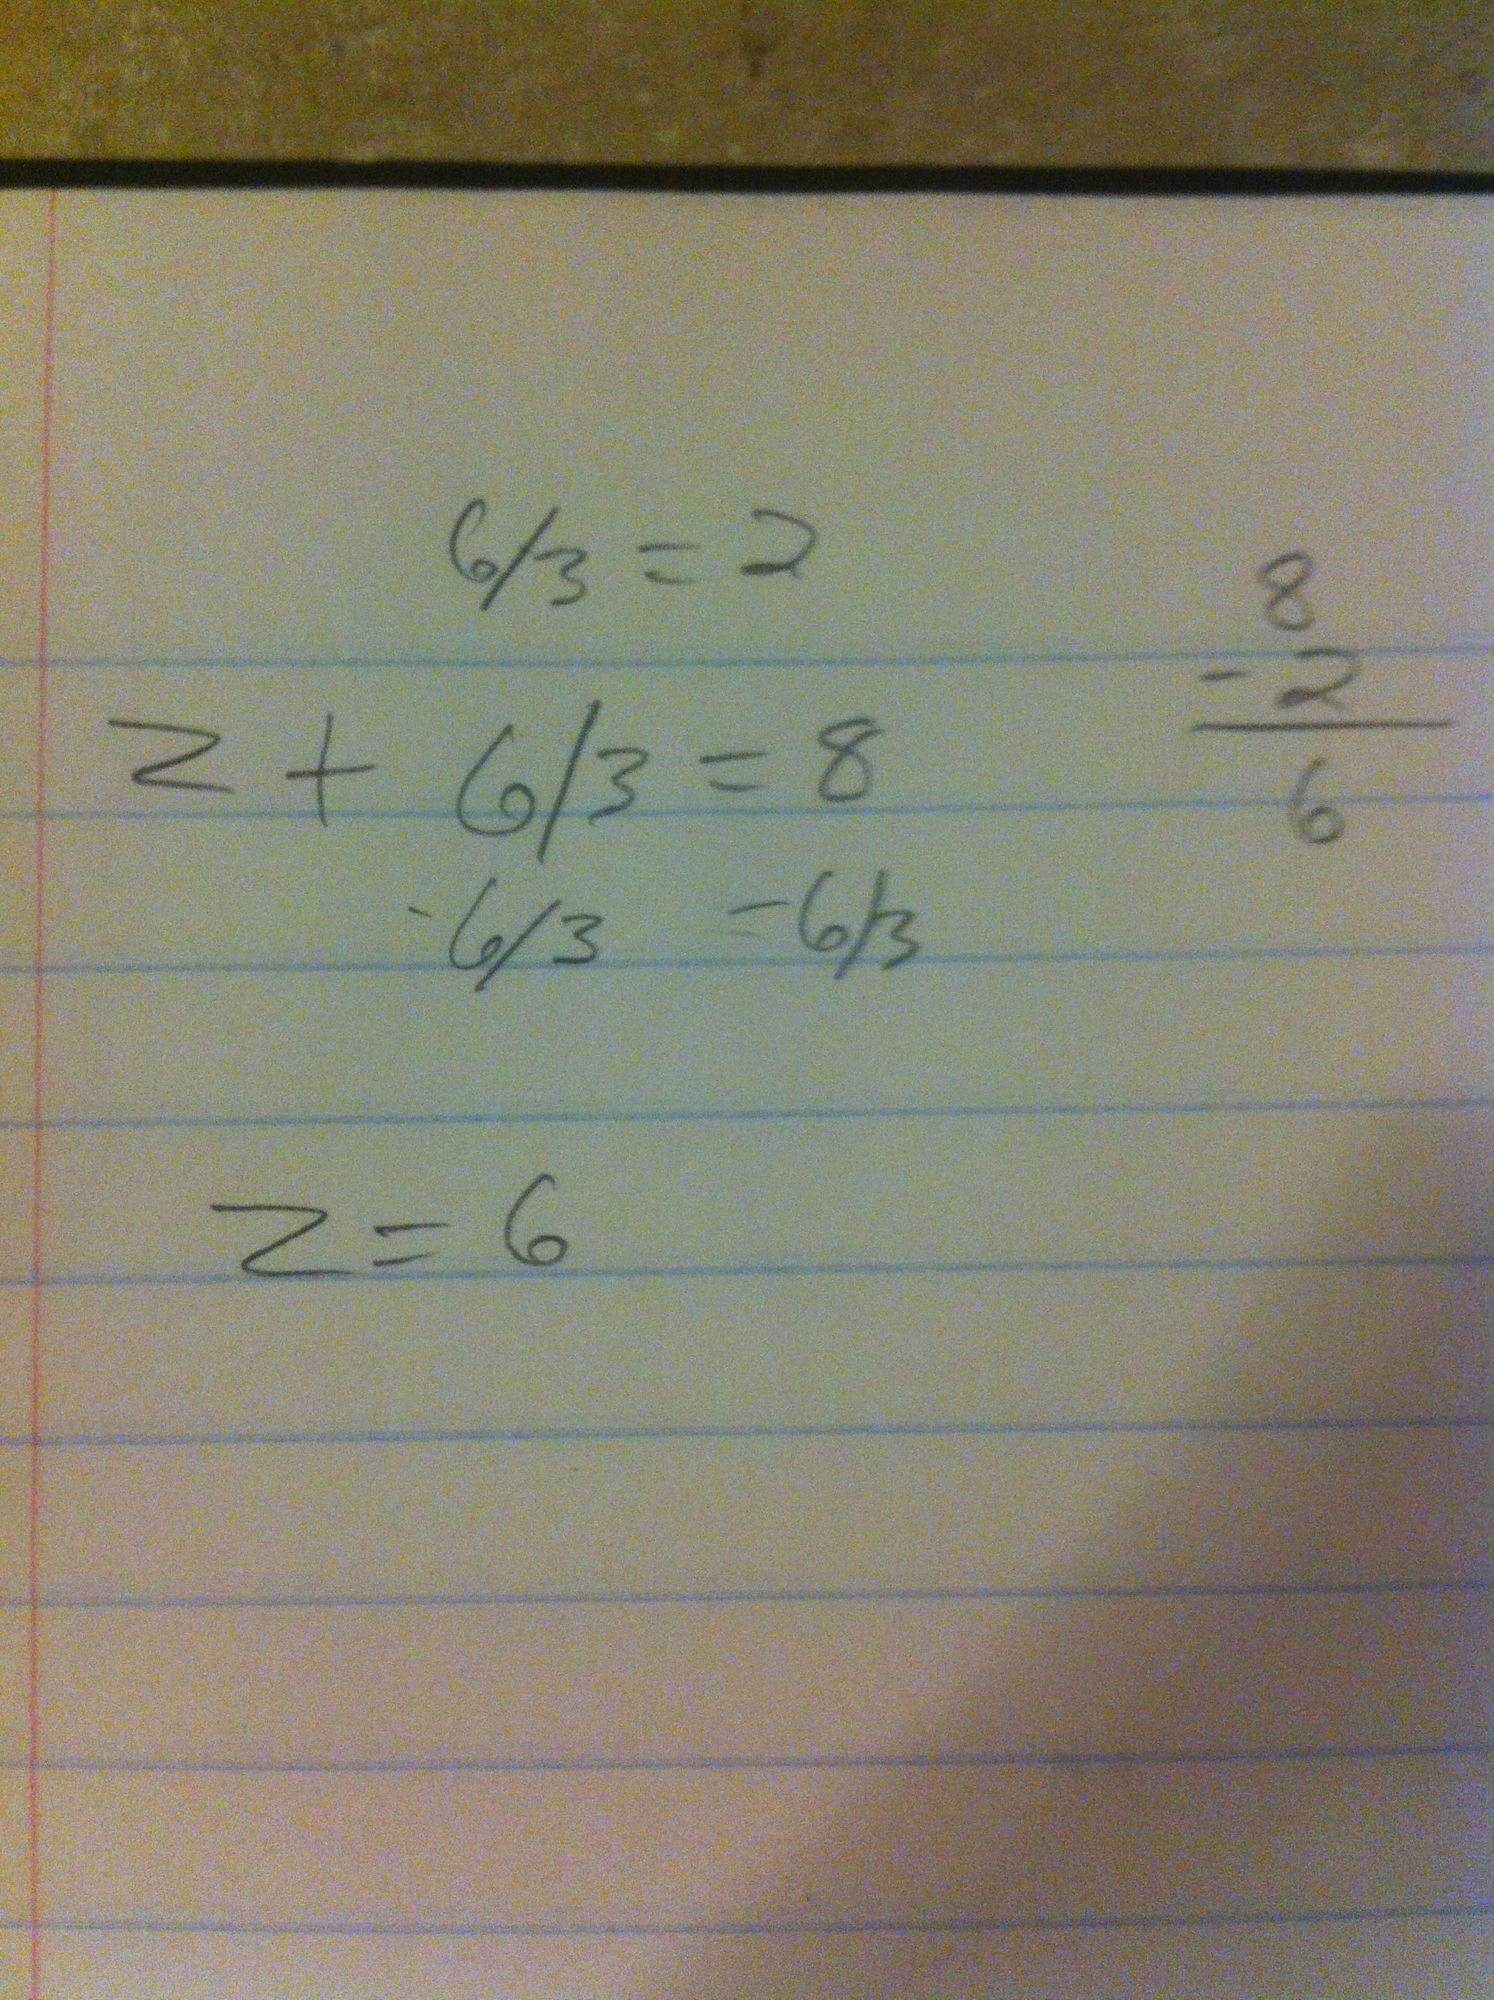 6/3 = 2
z + 6/3 = 8
-6/3 = -6/3
z = 6
8
- 2
6